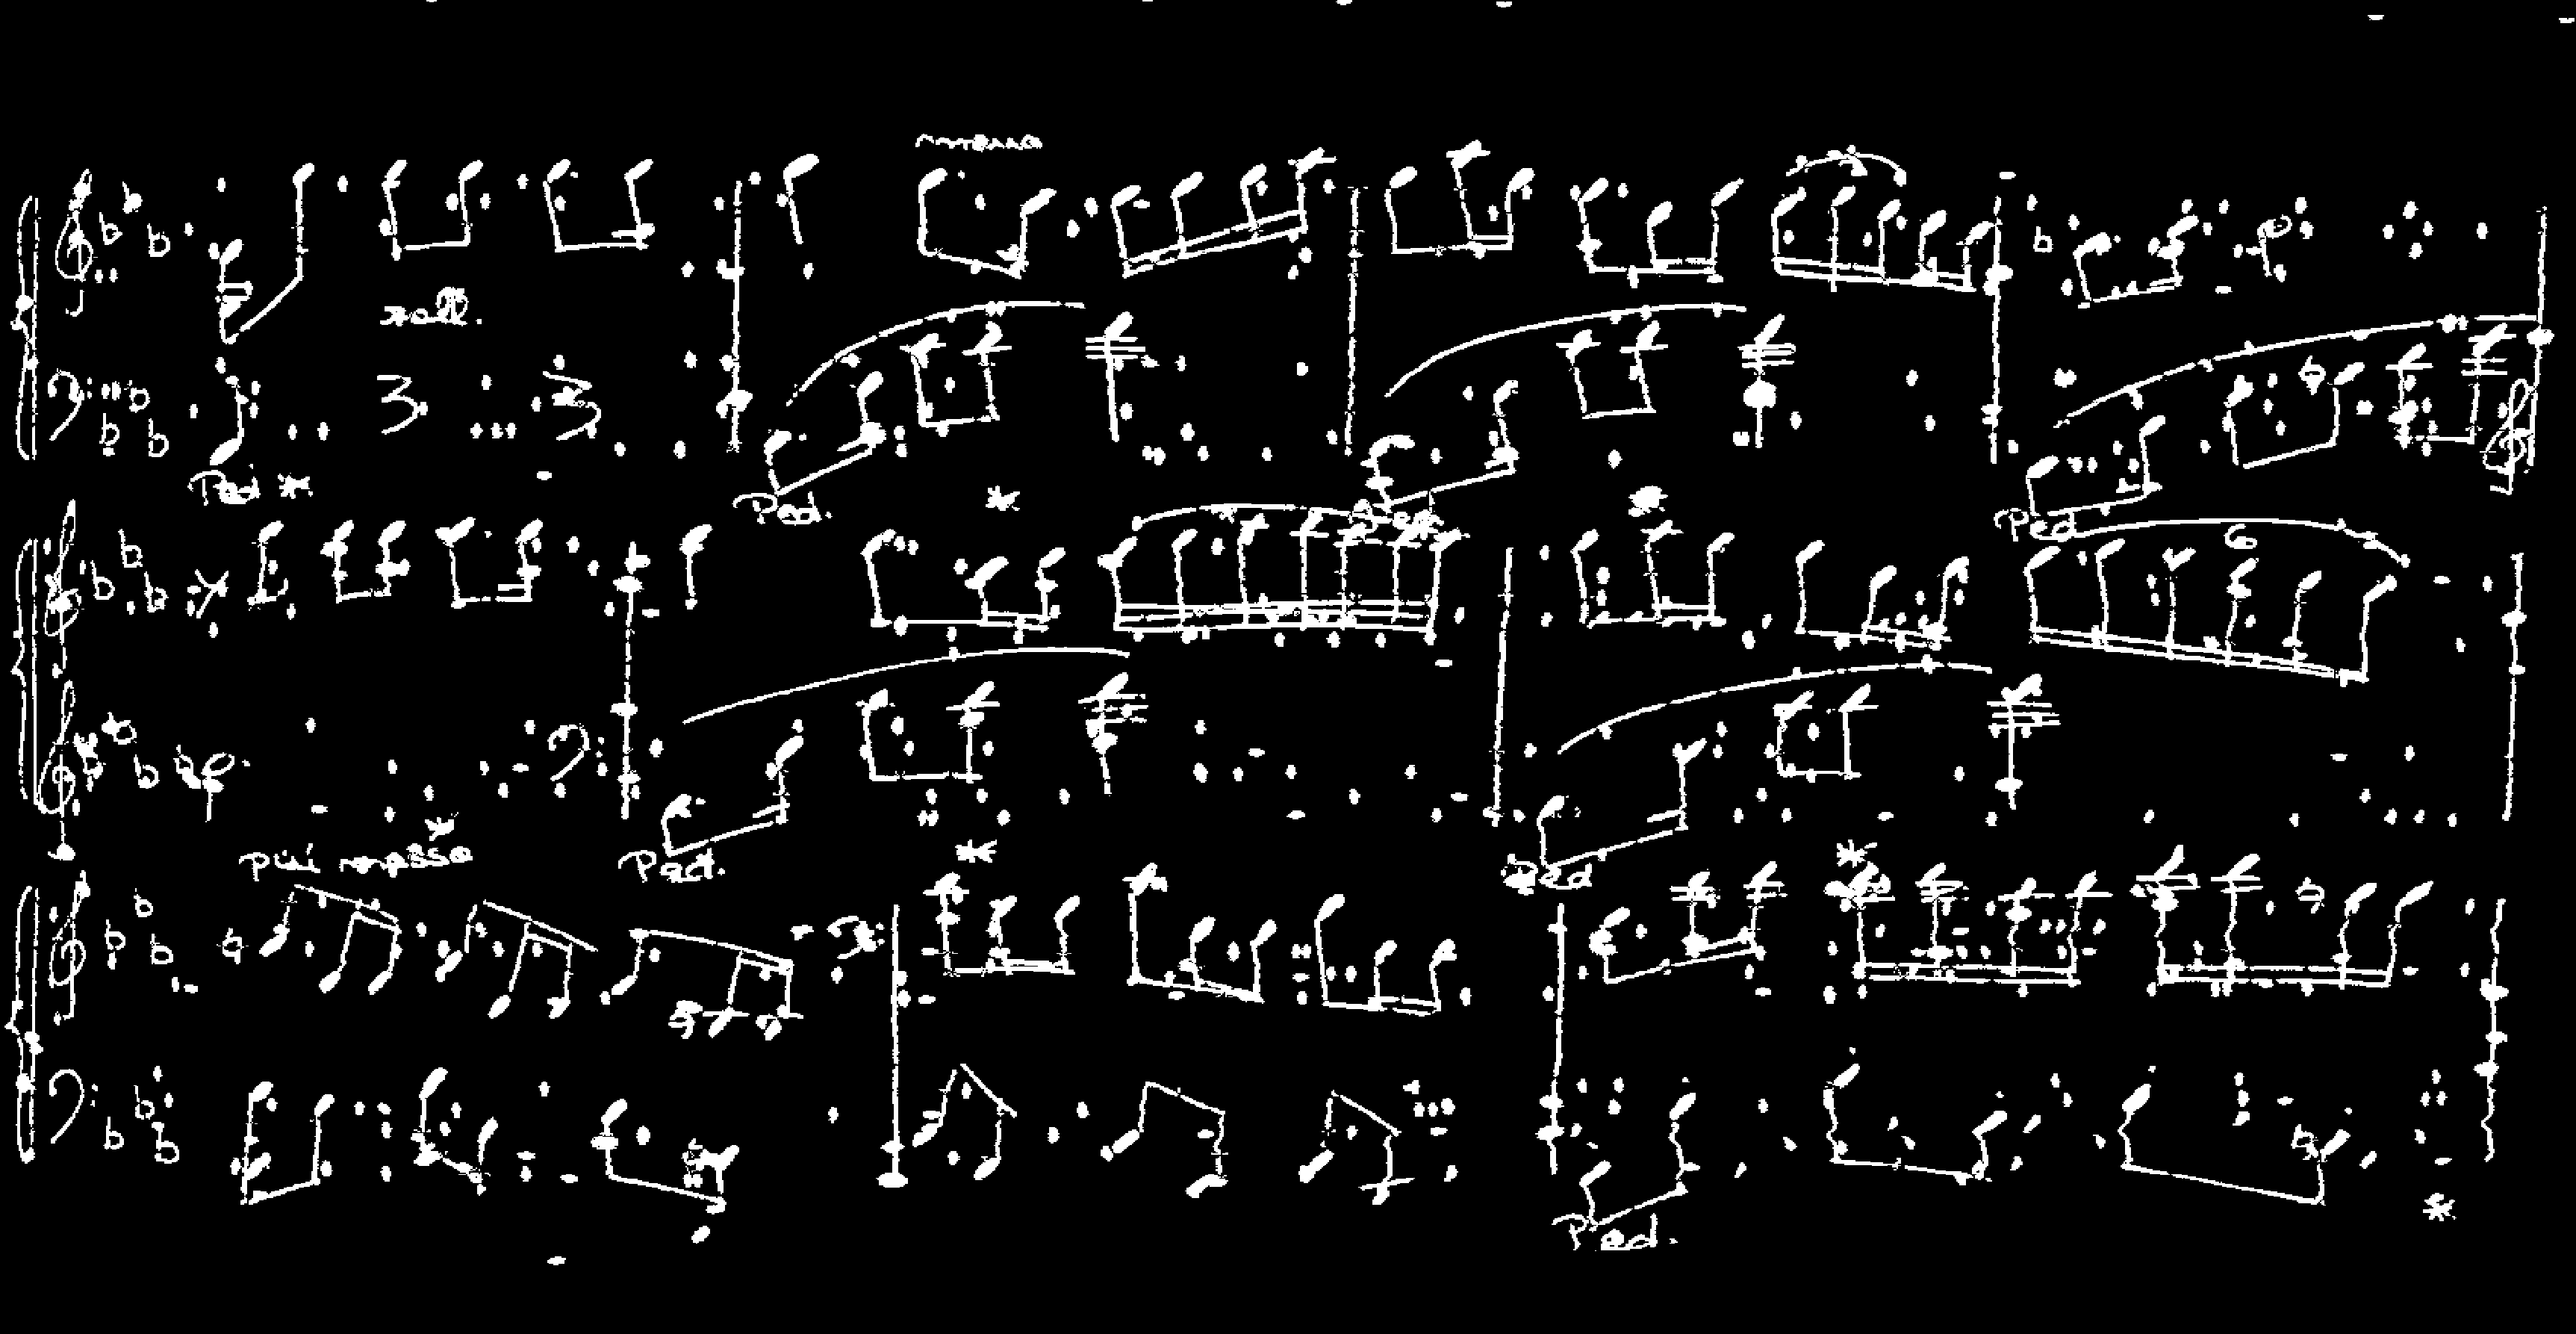 rall.
Ped *
Ped. *
*
Ped
6
più mosso
* Ped. *
Ped *
Ped. *